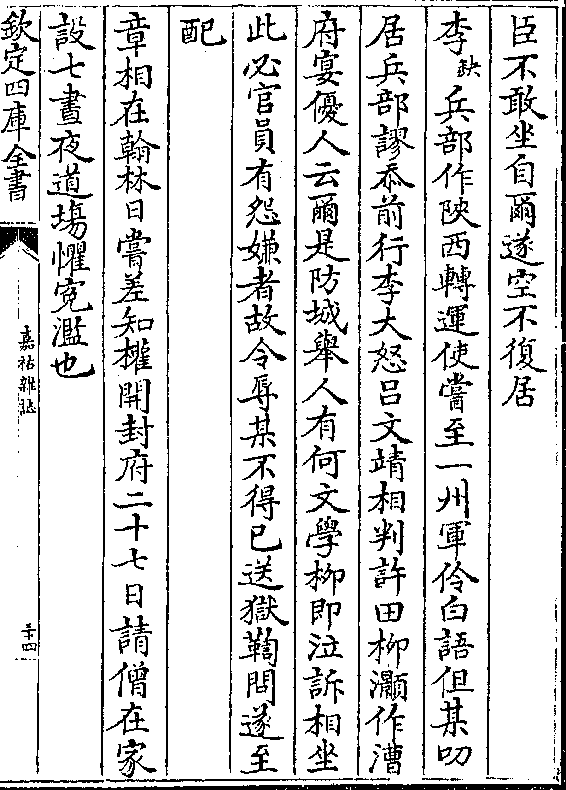 臣不敢坐自爾遂空不復居
李缺兵部作陜西轉運使嘗至一州軍伶白語但某叨
居兵部謬忝前行李大怒呂文靖相判許田柳灝作漕
府宴優人云爾是防城舉人有何文學柳即泣訴相坐
此必官員有怨嫌者故令辱某不得已送獄鞫問遂至
配
章相在翰林日嘗差知權開封府二十七日請僧在家
設七晝夜道塲懼寃濫也
欽定四庫全書
嘉祐雜誌
三十四